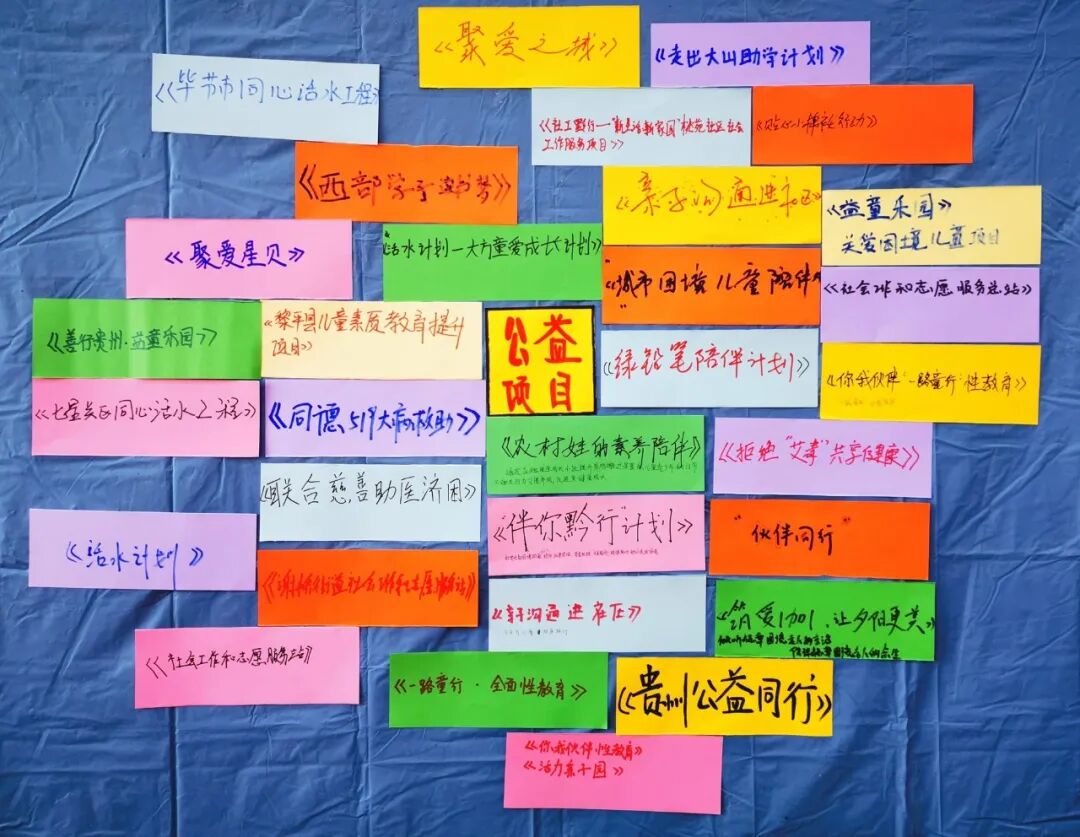 《聚爱之城》
《走出大山助学计划》
《毕节市同心活水工程》
《社工黔行—"新生活新家园"社区社会
工作服务项目》
《贴心小棉袄行动》
《西部学子读书梦》
亲子沟通进社区
《益童乐园》
关爱困境儿童项目
《聚爱星贝》
活水计划—大方童爱成长计划》
城市困境儿童陪伴
《社会工作和志愿服务总站》
《善行贵州·益童乐园》
《黎平县儿童素质教育提升
项目》
公益
项目
《绿铅笔陪伴计划》
《你我伙伴"一路童行"性教育》
《七星关区同心活水工程》
《同德519大病救助》
《农村娃的素养陪伴》
《拒绝"艾毒"共享健康》
《联合慈善助医济困》
《活水计划》
"伴你黔行"计划》
"伙伴同行"
街道社会工作和志愿服务站》
《亲子沟通进社区》
爱1加1，让夕阳更美》
《社会工作和志愿服务站》
《一路童行·全面性教育》
《贵州公益同行》
《你我伙伴性教育》
《活力亲子园》